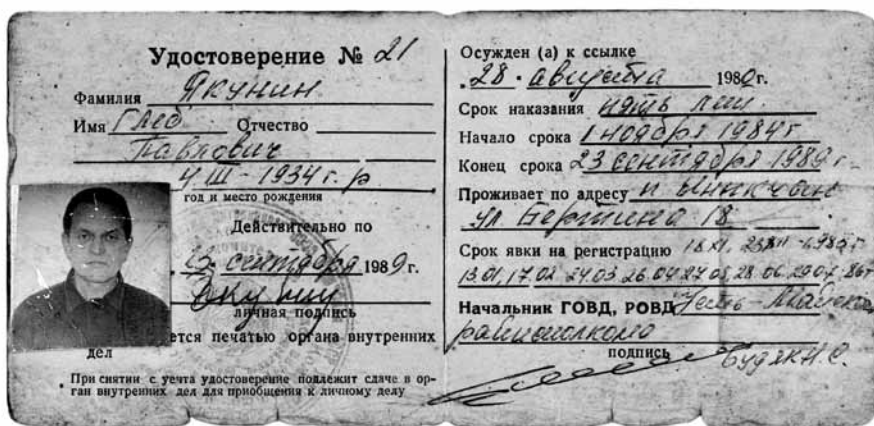 Удостоверение № 21
Фамилия Якунин
Имя Глеб Отчество
Павлович
4 III - 1934 г. р.
год и место рождения
Действительно по
23 сентября 1989 г.
личная подпись
ется печатью органа внутренних
дел
При снятии с учета удостоверение подлежит сдаче в ор-
ган внутренних дел для приобщения к личному делу
Осужден (а) к ссылке
28 августа 1980 г.
Срок наказания пять лет.
Начало срока 1 ноября 1984 г
Конец срока 23 сентября 1989 г.
Проживает по адресу п
ул Берзина 18
Срок явки на регистрацию 18 XI,
13.01, 17.02 24.03 26.04 24.05, 28.06 29.07
Начальник ГОВД, РОВД Усть-Майского
райисполкома
подпись Будяк Н. С.